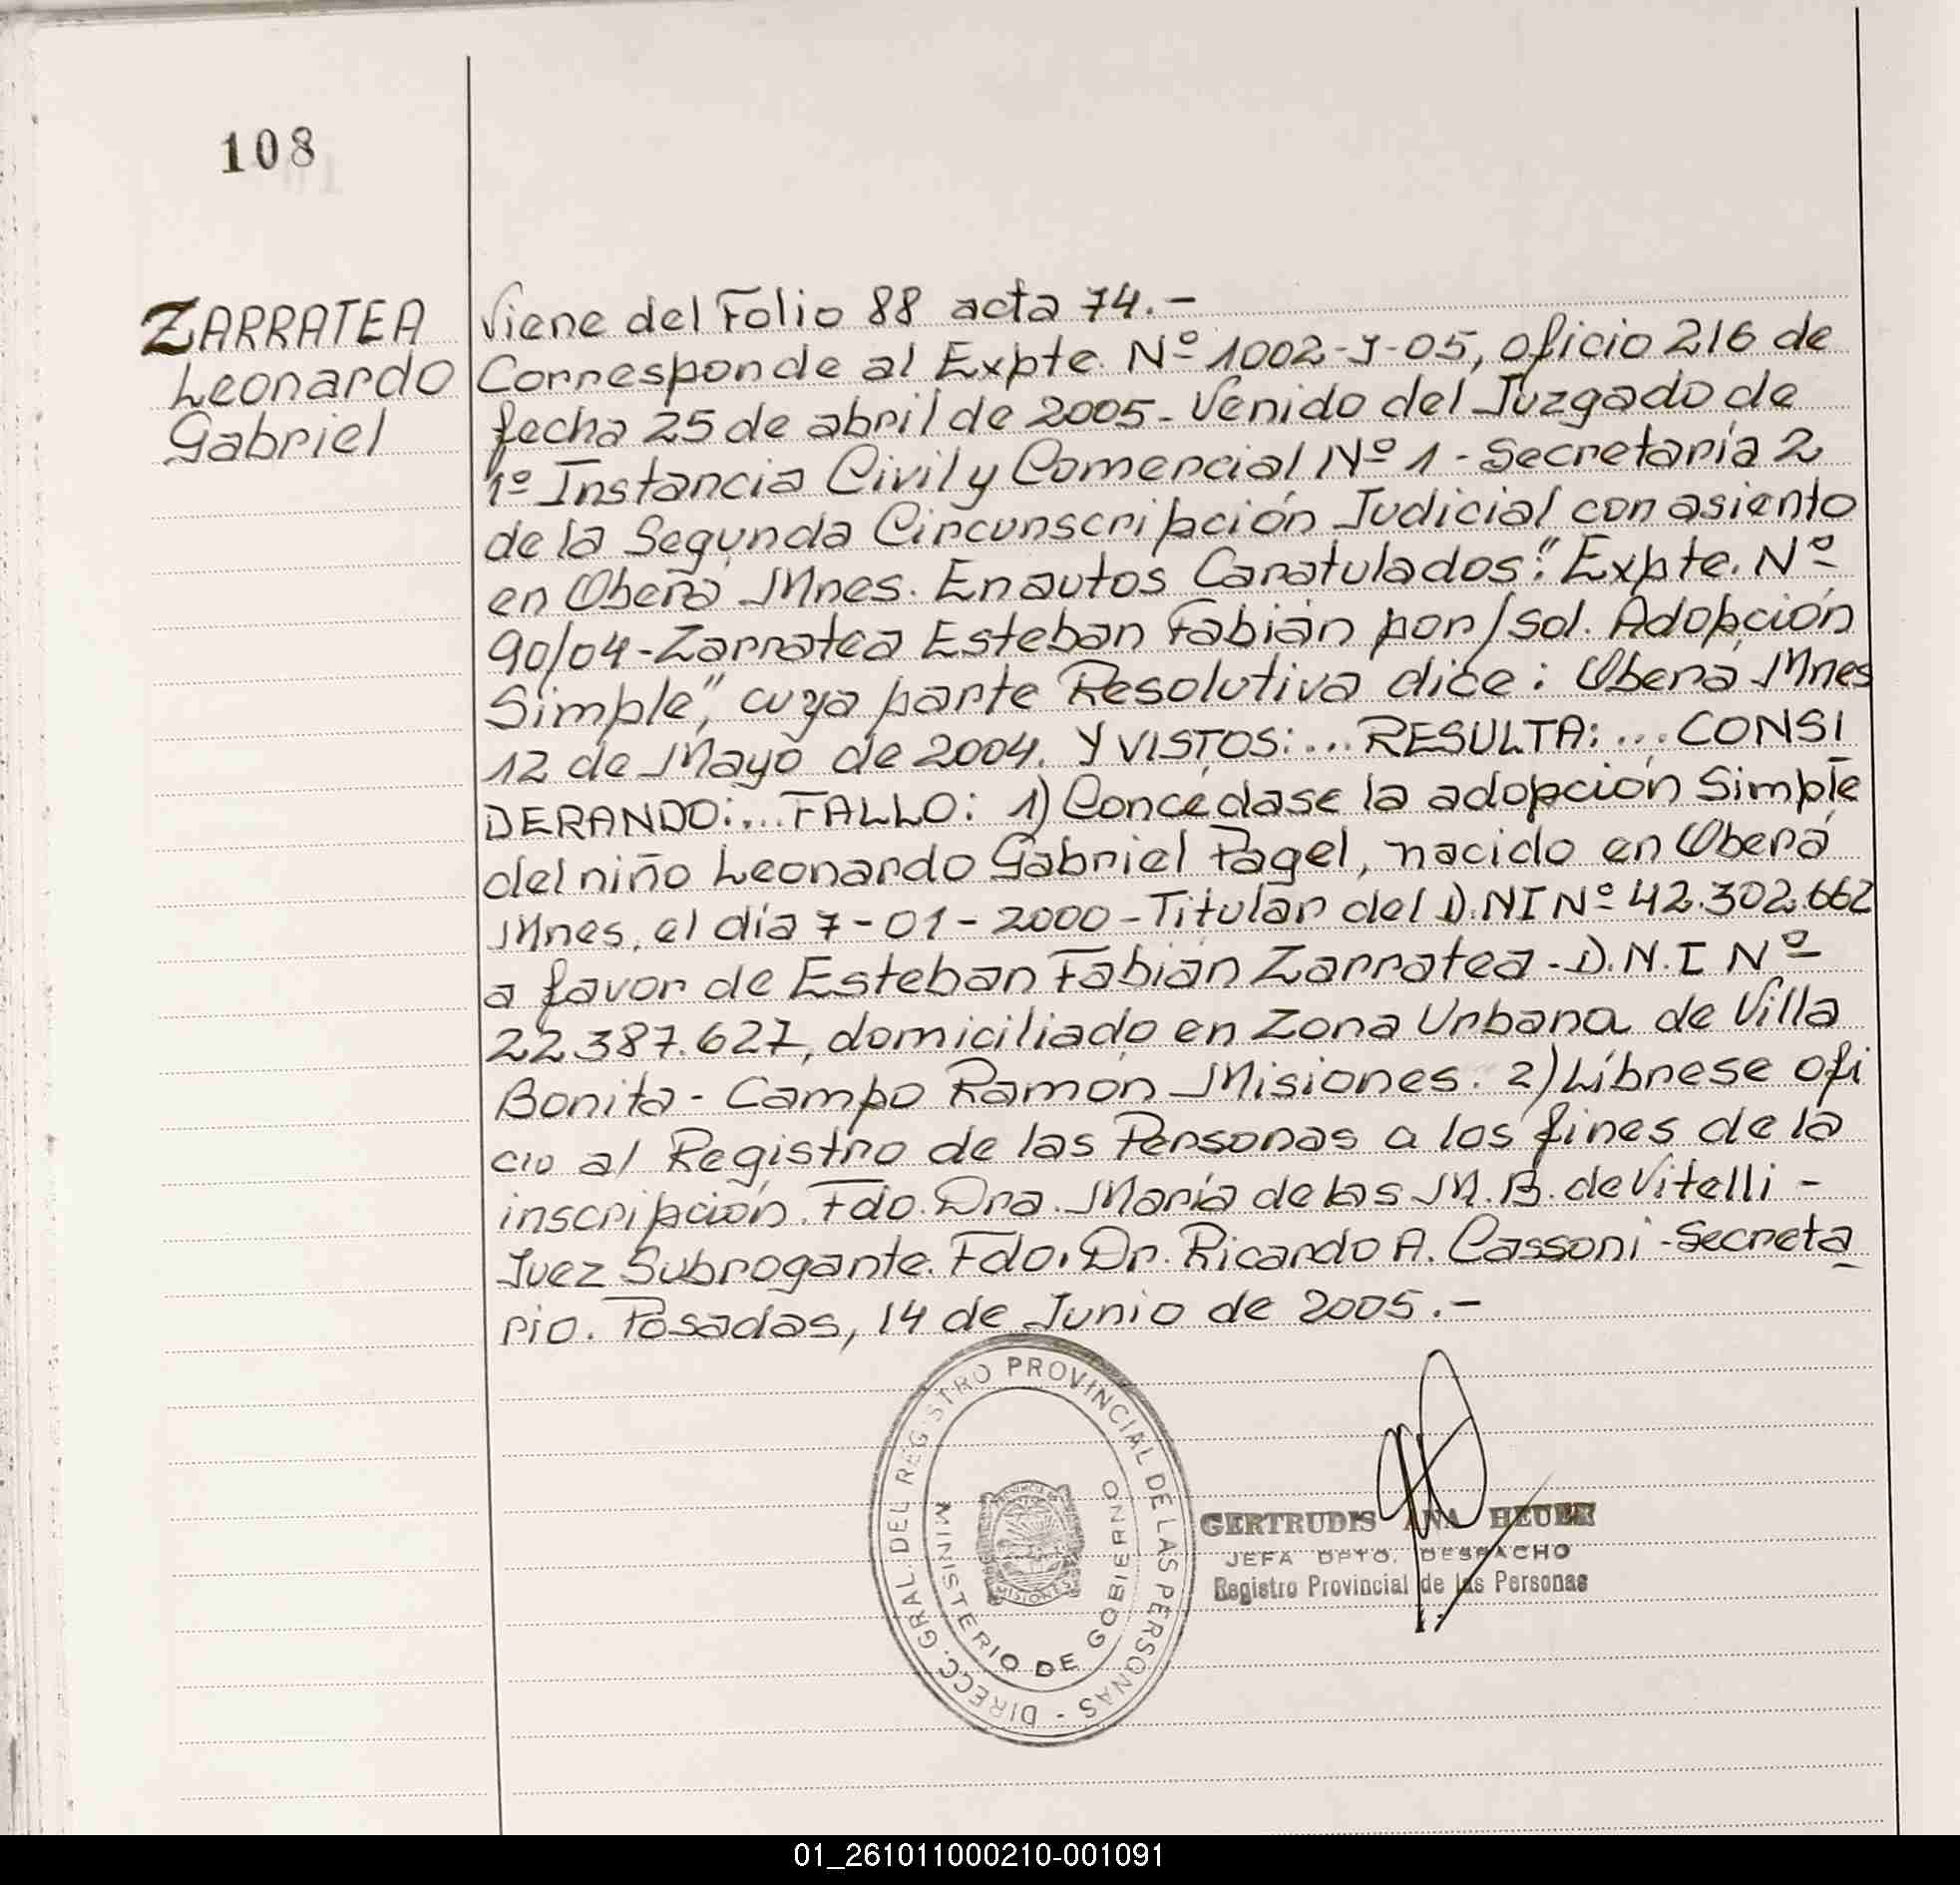 108
ZARRATEA
Leonardo
Gabriel
Viene del Folio 88 acta 74.-
Corresponde al Expte. Nº 1002-J-05, oficio 216 de
fecha 25 de abril de 2005- Venido del Juzgado de
1º Instancia Civil y Comercial Nº 1 - Secretaría 2
de la Segunda Circunscripción Judicial con asiento
en Oberá Mnes. En autos Caratulados:" Expte. Nº
90/04-Zarratea Esteban Fabián por/sol. Adopción
Simple", cuya parte Resolutiva dice: Oberá Mnes
12 de Mayo de 2004. Y VISTOS:... RESULTA:... CONSI
DERANDO:... FALLO: 1) Concédase la adopción Simple
del niño Leonardo Gabriel Pagel, nacido en Oberá
Mnes, el día 7-01-2000-Titular del D.NI Nº 42.302.662
a favor de Esteban Fabián Zarratea-D.N.I Nº
22.387.627, domiciliado en Zona Urbana de Villa
Bonita - Campo Ramón Misiones. 2) Líbrese ofi
cio al Registro de las Personas a los fines de la
inscripción. Fdo. Dra. María de las M. B. de Vitelli -
Juez Subrogante. Fdo. Dr. Ricardo A. Cassoni -Secreta
rio. Posadas, 14 de Junio de 2005.-
DIRECC. GRAL. DEL REGISTRO PROVINCIAL DE LAS PERSONAS -
MINISTERIO DE GOBIERNO
PROVINCIA DE
MISIONES
GERTRUDIS ANA HEUER
JEFA DPTO. DESPACHO
Registro Provincial de las Personas
01_261011000210-001091